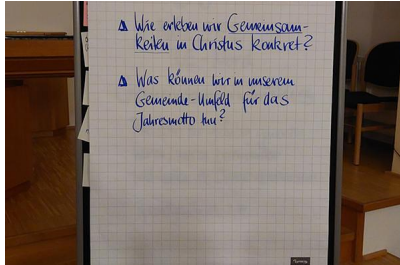 Wie erleben wir Gemeinsam-
keiten in Christus konkret?
Was können wir in unserem
Gemeinde-Umfeld für das
Jahresmotto tun?